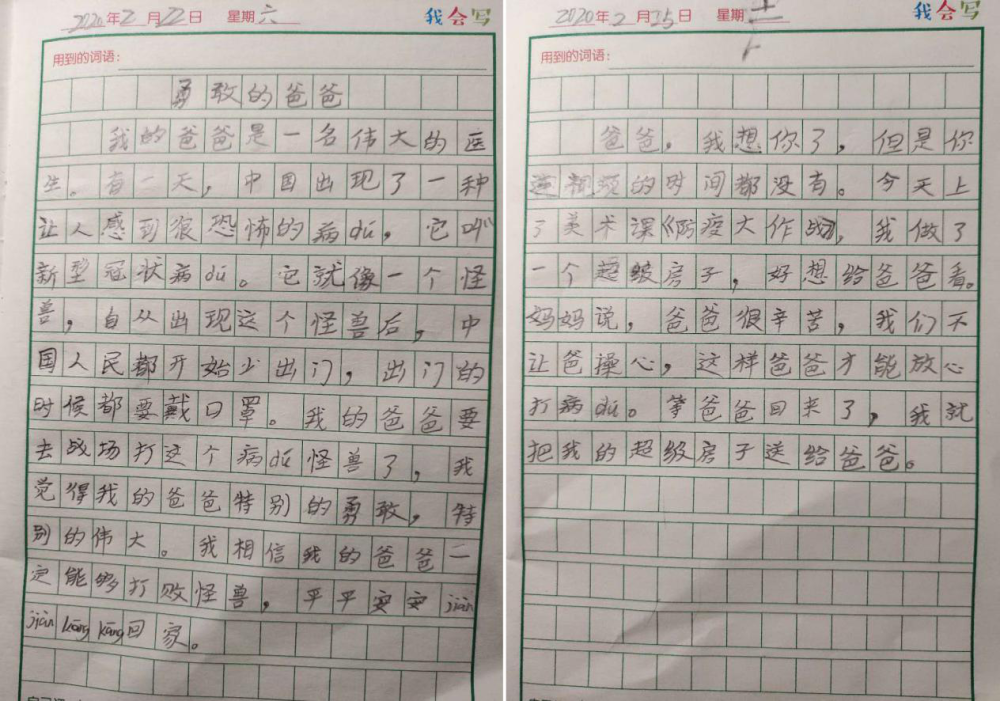 2020年2月22日 星期六 我会写
用到的词语:
勇敢的爸爸
我的爸爸是一名伟大的医
生。有一天，中国出现了一种
让人感到很恐怖的病dú，它叫
新型冠状病dú。它就像一个怪
兽，自从出现这个怪兽后，中
国人民都开始少出门，出门的
时候都要戴口罩。我的爸爸要
去战场打这个病dú怪兽了，我
觉得我的爸爸特别的勇敢，特
别的伟大。我相信我的爸爸一
定能够打败怪兽，平平安安jiàn
jiàn kāng kāng回家。
2020年2月25日 星期二 我会写
用到的词语:
爸爸，我想你了，但是你
连视频的时间都没有。今天上
了美术课《防疫大作战》，我做了
一个超级房子，好想给爸爸看。
妈妈说，爸爸很辛苦，我们不
让爸操心，这样爸爸才能放心
打病dú。等爸爸回来了，我就
把我的超级房子送给爸爸。